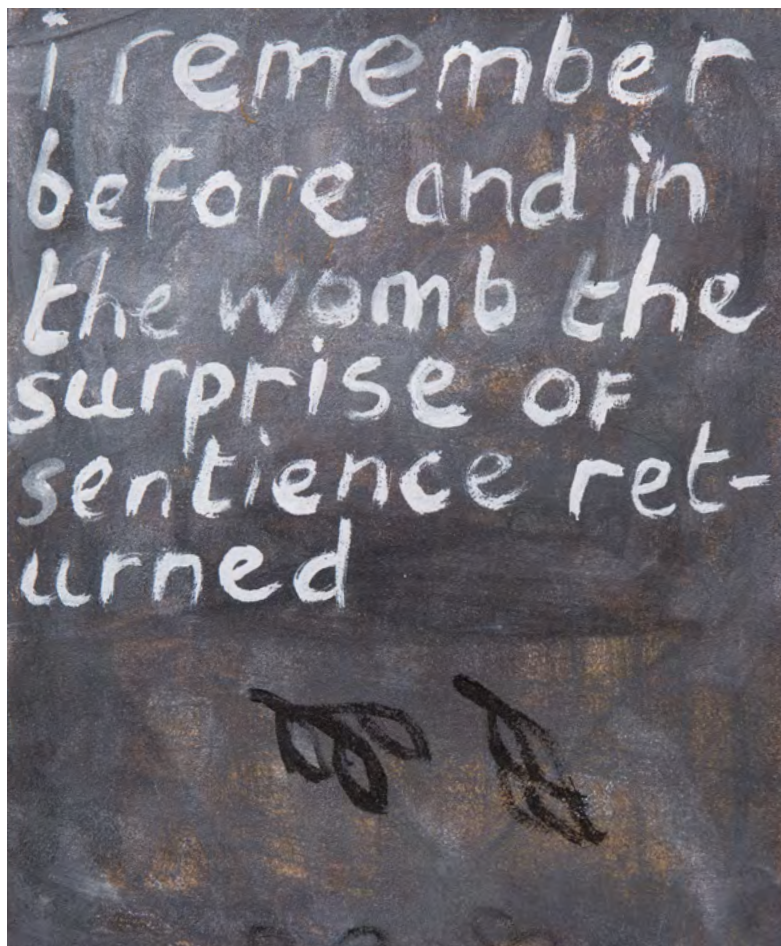 i remember
before and in
the womb the
surprise of
sentience ret-
urned